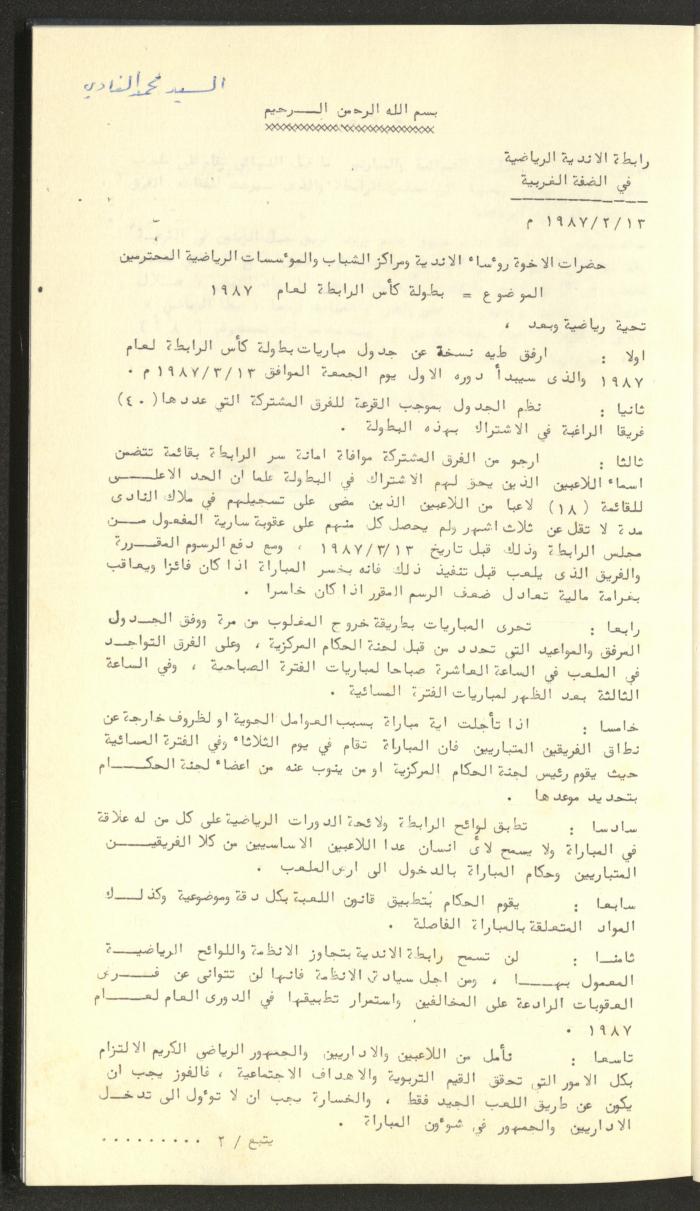 السيد محمد الفادي
بسم الله الرحمن الـــرحيم
رابطة الاندية الرياضية
في الضفة الغربية
١٩٨٧/٢/١٣ م
حضرات الاخوة روءساء الاندية ومراكز الشباب والموءسسات الرياضية المحترمين
الموضوع = بطولة كأس الرابطة لعام ١٩٨٧
تحية رياضية وبعد ،
اولا : ارفق طيه نسخة عن جدول مباريات بطولة كأس الرابطة لعام
١٩٨٧ والذى سيبدأ دوره الاول يوم الجمعة الموافق ١٩٨٧/٣/١٣ م .
ثانيا : نظم الجدول بموجب القرعة للفرق المشتركة التي عددها (٤٠)
فريقا الراغبة في الاشتراك بهذه البطولة .
ثالثا : ارجو من الفرق المشتركة موافاة امانة سر الرابطة بقائمة تتضمن
اسماء اللاعبين الذين يحق لهم الاشتراك في البطولة علما ان الحد الاعلـــى
للقائمة (١٨) لاعبا من اللاعبين الذين مضى على تسجيلهم في ملاك النادى
مدة لا تقل عن ثلاث اشهر ولم يحصل كل منهم على عقوبة سارية المفعول مـــن
مجلس الرابطة وذلك قبل تاريخ ١٩٨٧/٣/١٣ ، ومع دفع الرسوم المقـــررة
والفريق الذى يلعب قبل تنفيذ ذلك فانه يخسر المباراة اذا كان فائزا ويعاقب
بغرامة مالية تعادل ضعف الرسم المقرر اذا كان خاسرا .
رابعا : تجرى المباريات بطريقة خروج المغلوب من مرة ووفق الجـــدول
المرفق والمواعيد التي تحدد من قبل لجنة الحكام المركزية ، وعلى الفرق التواجـد
في الملعب في الساعة العاشرة صباحا لمباريات الفترة الصباحية ، وفي الساعة
الثالثة بعد الظهر لمباريات الفترة المسائية .
خامسا : اذا تأجلت اية مباراة بسبب العوامل الجوية او لظروف خارجة عن
نطاق الفريقين المتباريين فان المباراة تقام في يوم الثلاثاء وفي الفترة المسائية
حيث يقوم رئيس لجنة الحكام المركزية او من ينوب عنه من اعضاء لجنة الحكـــام
بتحديد موعدها .
سادسا : تطبق لوائح الرابطة ولائحة الدورات الرياضية على كل من له علاقة
في المباراة ولا يسمح لائ انسان عدا اللاعبين الاساسيين من كلا الفريقيـــن
المتباريين وحكام المباراة بالدخول الى ارض الملعب .
سابعا : يقوم الحكام بتطبيق قانون اللعبة بكل دقة وموضوعية وكذلـــك
المواد المتعلقة بالمباراة الفاصلة .
ثامنـا : لن تسمح رابطة الاندية بتجاوز الانظمة واللوائح الرياضيـــة
المعمول بهـــا ، ومن اجل سيادة الانظمة فانها لن تتوانى عن فـــرض
العقوبات الرادعة على المخالفين واستمرار تطبيقها في الدورى العام لعـــام
١٩٨٧ .
تاسعا : نأمل من اللاعبين والاداريين والجمهور الرياضي الكريم الالتزام
بكل الامور التي تحقق القيم التربوية والاهداف الاجتماعية ، فالفوز يجب ان
يكون عن طريق اللعب الجيد فقط ، والخسارة يجب ان لا توءول الى تدخـــل
الاداريين والجمهور في شوءون المباراة .
يتبع / ٢ . . . . . . . . .